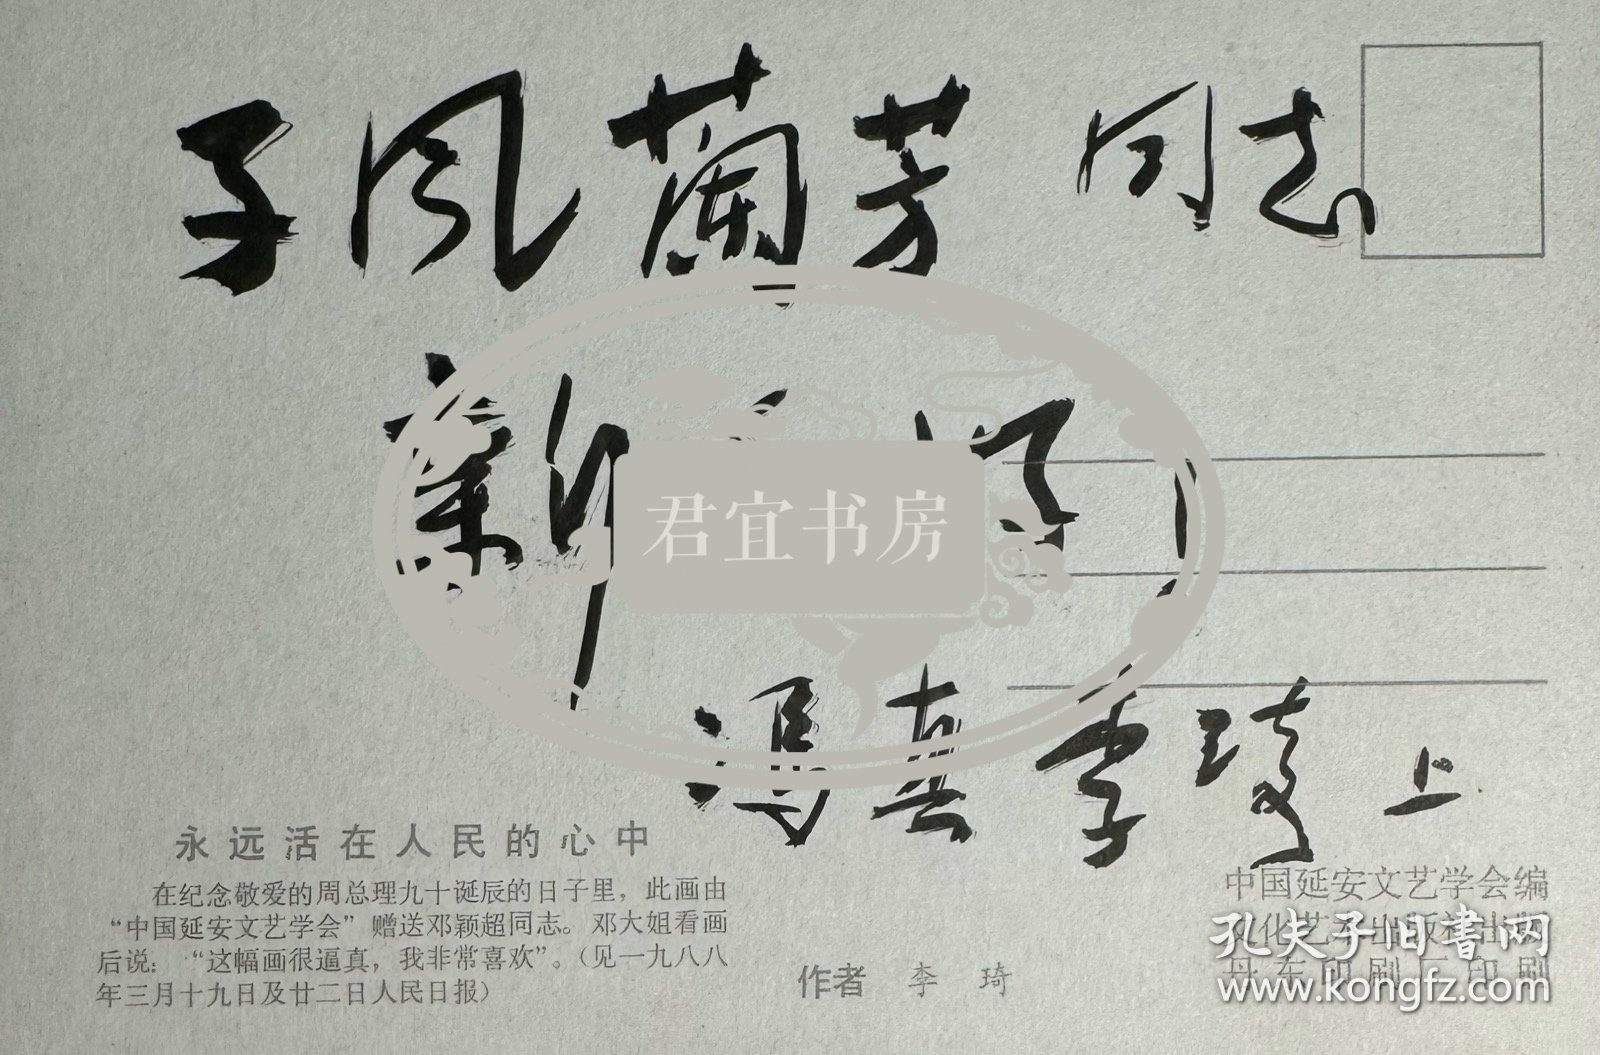 子风 蘭芳 同志
新
君宜书房
冯真 李琦 上
永远活在人民的心中
在纪念敬爱的周总理九十诞辰的日子里，此画由
“中国延安文艺学会”赠送邓颖超同志。邓大姐看画
后说：“这幅画很逼真，我非常喜欢”。（见一九八八
年三月十九日及廿二日人民日报）
作者 李琦
中国延安文艺学会编
文化艺术出版社出版
丹东印刷厂印刷
孔夫子旧书网
www.kongfz.com